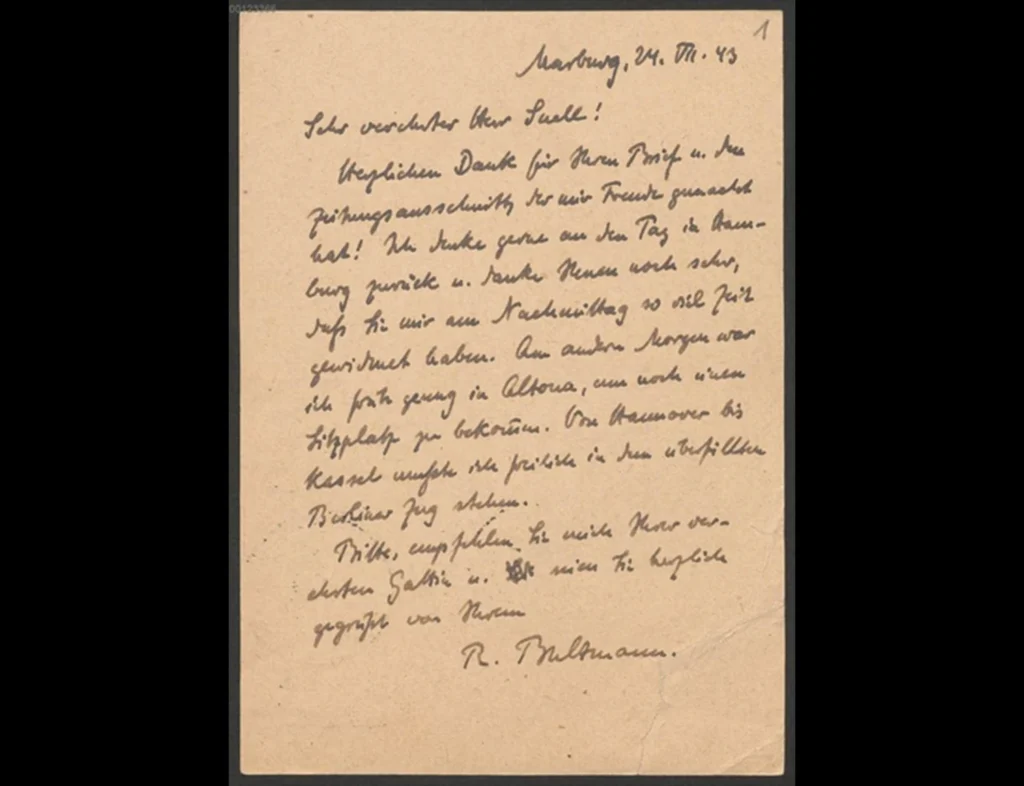 00123366
1
Marburg, 24. VII. 43
Sehr verehrter Herr Snell!
Herzlichen Dank für Ihren Brief u. den
Zeitungsausschnitt, der mir Freude gemacht
hat! Ich denke gerne an den Tag in Ham-
burg zurück u. danke Ihnen noch sehr,
daß Sie mir am Nachmittag so viel Zeit
gewidmet haben. Am andern Morgen war
ich früh genug in Altona, um noch einen
Sitzplatz zu bekom̄en. Von Hannover bis
Kassel mußte ich freilich in dem überfüllten
Berliner Zug stehen.
Bitte, empfehlen Sie mich Ihrer ver-
ehrten Gattin u. seien Sie herzlich
gegrüßt von Ihrem
R. Bultmann.